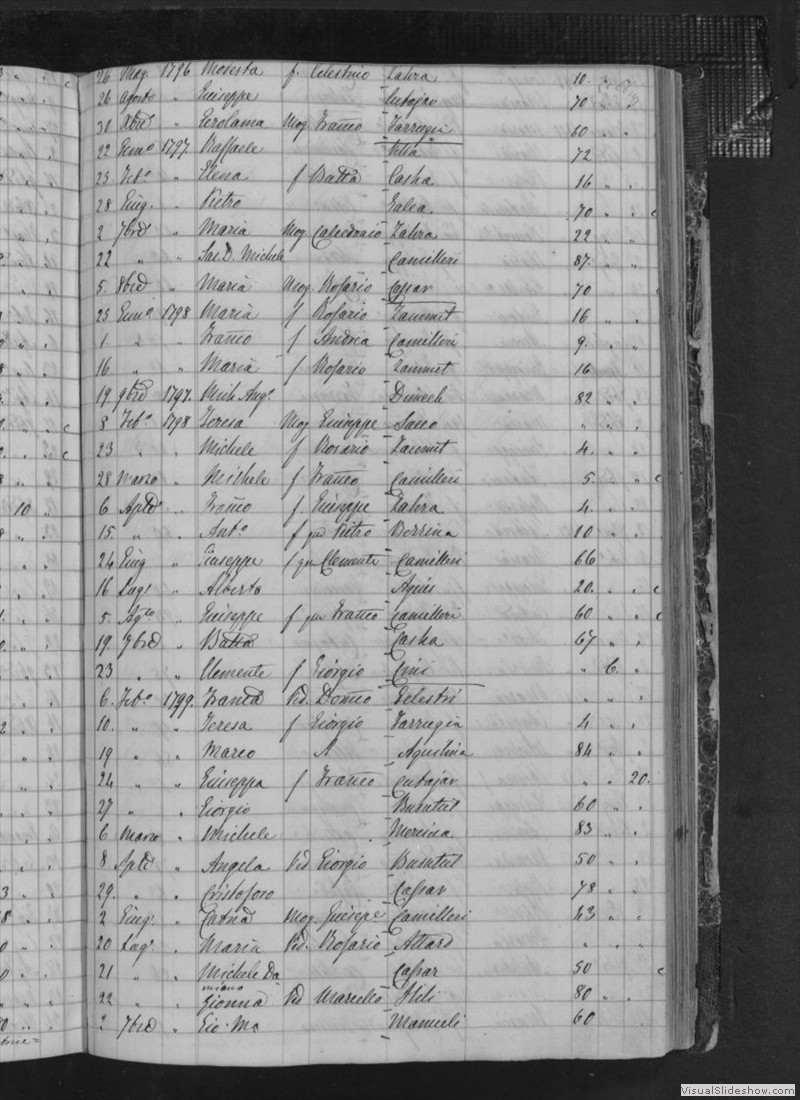 26 Mag. 1796 Modesta f. Celestrino Zahra 10.
26 agosto " Giuseppe Cutajar 70 " "
30 Xbre " Gerolama Mog Franco Farrugia 60 " "
22 Genno 1797 Raffaele Vella 72
25 Febo " Elena f Batta Casha 16 " "
28 Giug. " Pietro Galea 70 " "
2 7bre " Maria Mog Calcedonio Zahra 22 " "
22 " " Sac. D. Michele Camilleri 87. " "
5. 8bre " Maria Mog. Rosario Cassar 70
25 Genno 1798 Maria f Rosario Zammit 16 " "
1. " " Franco f Andrea Camilleri 9. " "
16 " " Maria f Rosario Zammit 16
19. 9bre 1797. Mich. Ango Dimech 82 " "
8 Febo 1798 Teresa Mog Giuseppe Sacco " " "
23 " " Michele f Rosario Zammit 4. " "
28 Marzo " Michele f Franco Camilleri 5. " "
6 Aple " Franco f. Giuseppe Zahra 4. " "
15 " " Anto f qm Pietro 10 " "
24 Giug " Giuseppe f qm Clemente Camilleri 66
16 Lugo " Alberto Agius 20. " "
5. Agto " Giuseppe f qm Franco Camilleri 60 " "
19. 7bre " Batta Casha 67 " "
23 " " Clemente f Giorgio Cini " 6. "
6. Febo 1799. Franca Vid. Domco Celestri " " "
10. " " Teresa f Giorgio Farrugia 4 " "
19 " " Marco Agostina 84 " "
24 " " Giuseppa f Franco Cutajar " " 20.
27 " " Giorgio Busuttil 60 " "
6 Marzo " Michele Mercica 83 " "
8 Aple " Angela Vid Giorgio Busuttil 50 " "
29. " " Cristoforo Cassar 78 " "
2 Giug. " Catna Mog. Giuseppe Camilleri 43 " "
20 Lugo " Maria Vid. Rosario Attard " " "
21 " " Michele Da Cassar 50 "
miano
22 " " Gionna Vid Marcello Hili 80 " "
2 7bre " Gio: Ma Mamieli 60
10
VisualSlideshow.com